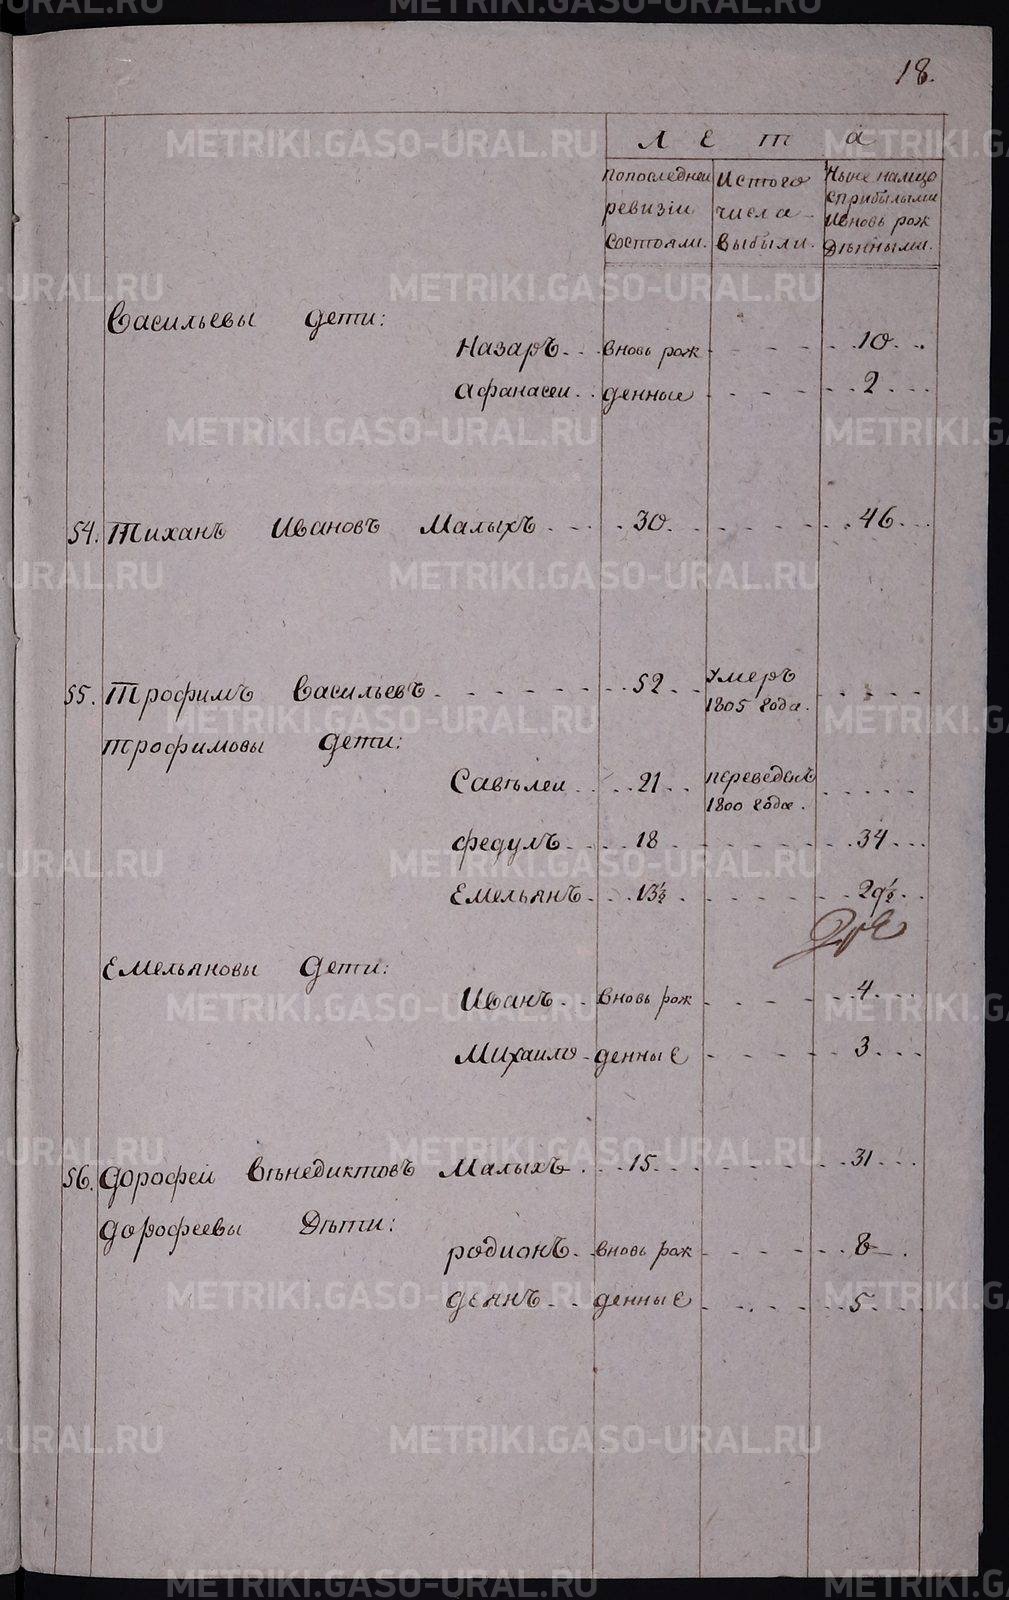 18.
Лета
попоследнеи ревизіи состояли.
Истого числа выбыли.
Ныне налицо сприбылыми ивновь рож дѣнными.
Васильевы дети:
Назаръ вновь рож 10
Афанасеи денные 2
54. Тиханъ Ивановъ Малыхъ 30 46
55. Трофимъ Васильевъ 52 Умеръ 1805 года.
Трофимовы дети:
Савѣлеи 21 переведенъ 1800 года.
Федулъ 18 34
Емельянъ 13½ 29½
Емельяновы дети:
Иванъ вновь рож 4
Михаило денные 3
56. Дорофеи Вѣнедиктовъ Малыхъ 15 31
Дорофеевы Дѣти:
родионъ вновь рож 8
деянъ денные 5
METRIKI.GASO-URAL.RU